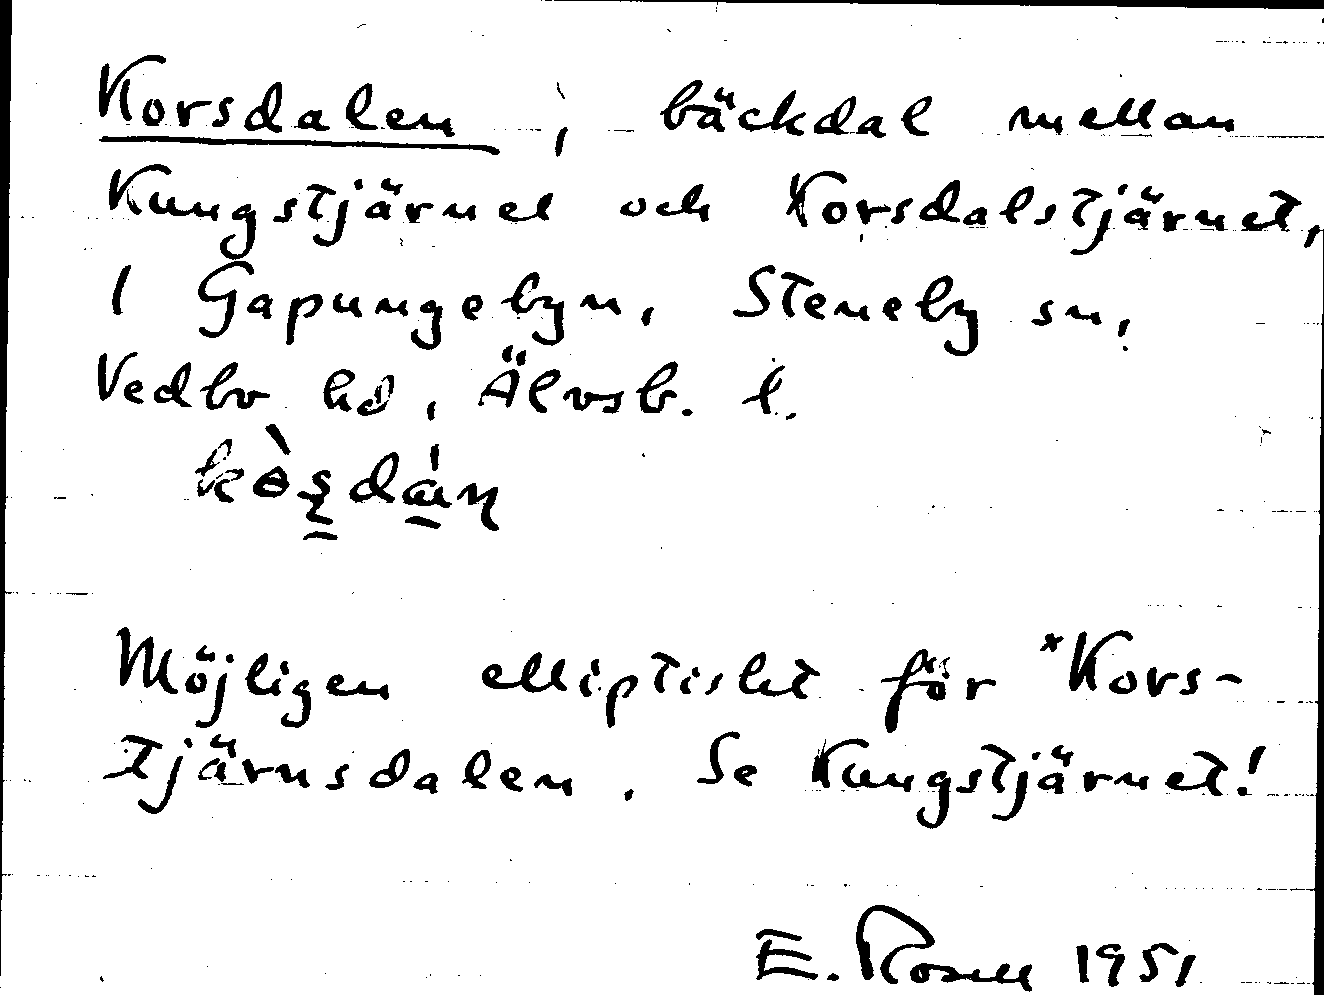 Korsdalen, bäckdal mellan
Kungstjärnet och Korsdalstjärnet,
i Gapungebyn, Steneby sn,
Vedbo hd, Älvsb. l.
Möjligen elliptiskt för *Kors-
tjärnsdalen. Se Kungstjärnet!
E. Rosell 1951